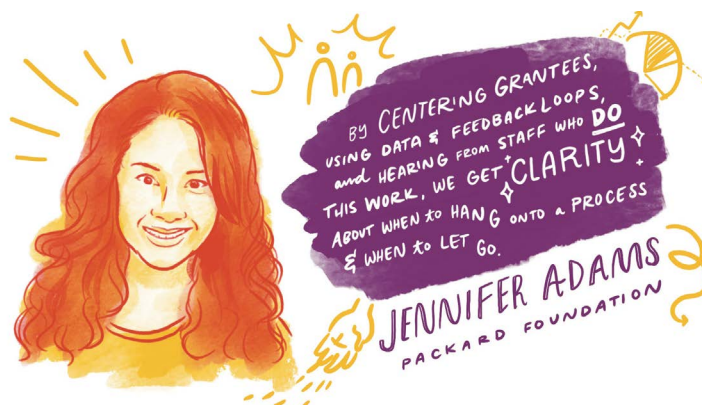 BY CENTERING GRANTEES,
USING DATA & FEEDBACK LOOPS,
and HEARING FROM STAFF WHO DO
THIS WORK, WE GET CLARITY
ABOUT WHEN to HANG ONTO a PROCESS
& WHEN to LET GO.
JENNIFER ADAMS
PACKARD FOUNDATION